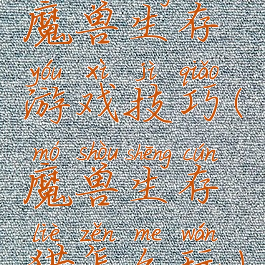 魔兽生存
yóu xì jì qiǎo
游戏技巧(
mó shòu shēng cún
魔兽生存
liè zěn me wán
猎怎么玩)